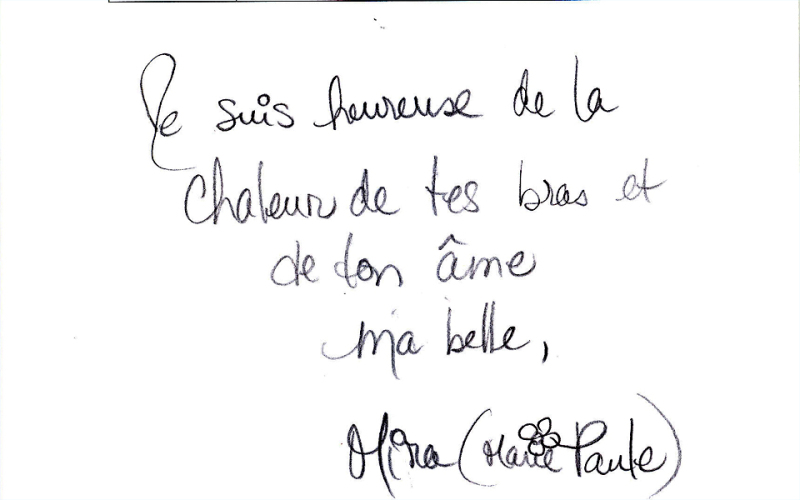 Je suis heureuse de la
chaleur de tes bras et
de ton âme
ma belle,
Mira (Marie Paule)